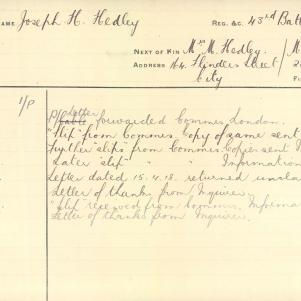 NAME Joseph H. Hedley REG. &C. 43rd Batt
NEXT OF KIN Mrs M. Hedley.
ADDRESS Flinders Street
City
1/P
P/C letter
cable forwarded Commrs. London.
"Slip" from Commrs. Copy of same sent
Further "slips" from Commrs. Copies sent
Later "slip" " " Information
Letter dated 15.4.18. returned uncla
Letter of thanks from Inquirer.
"Slip" received from Commrs. Informa
Letter of thanks from Inquirer.